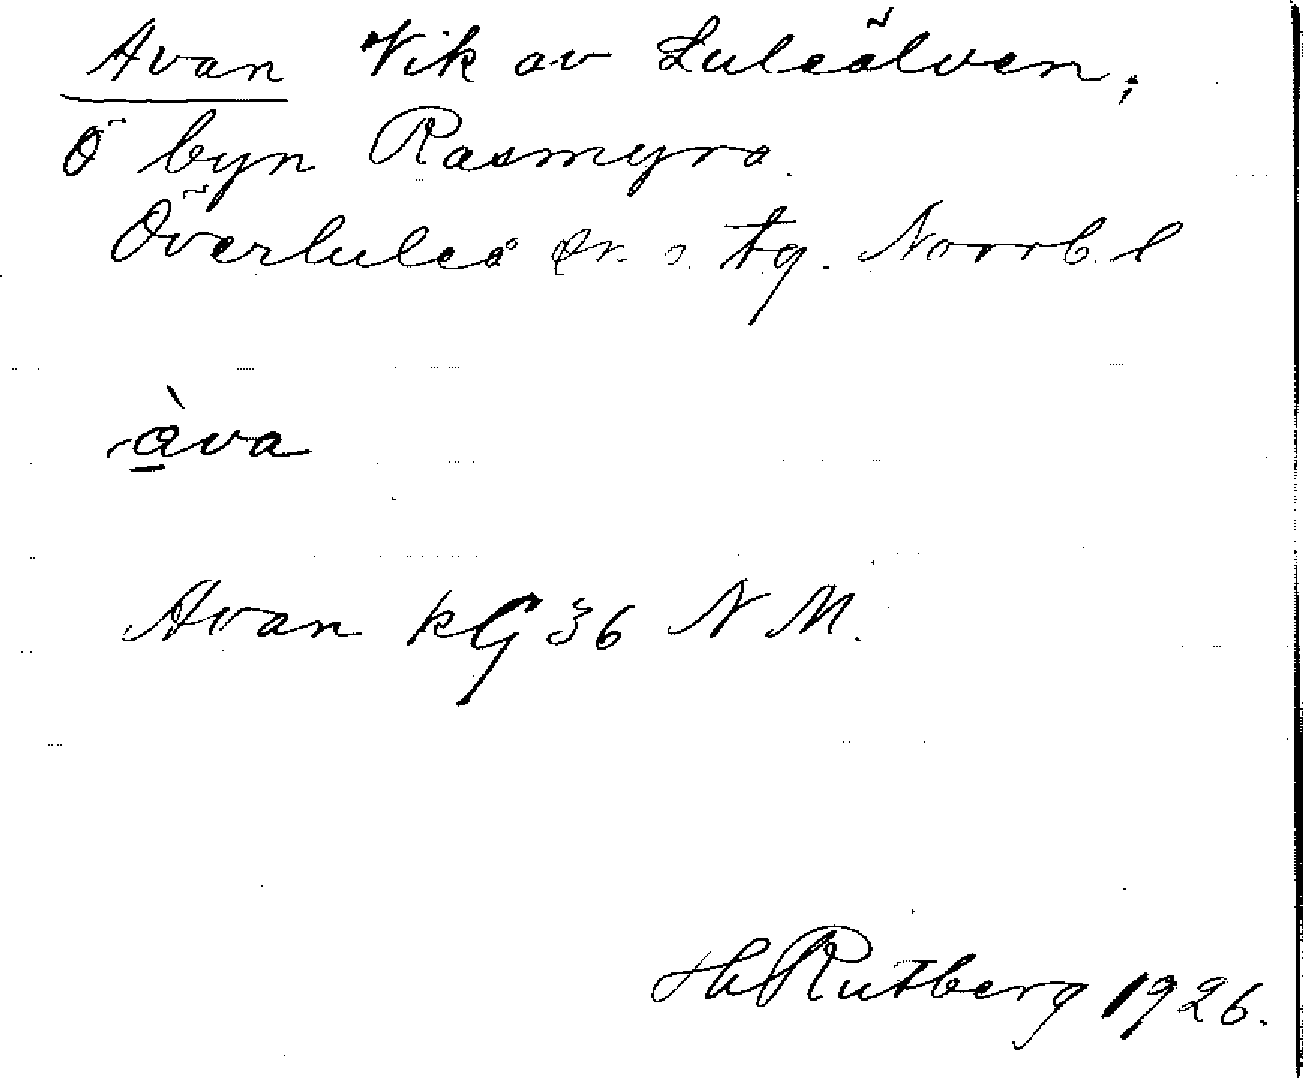 Avan Vik av Luleälven,
Ö byn Rasmyra.
Överluleå sn. o. tg. Norrb. l
àva
Avan kG 36 N M.
H Rutberg 1926.